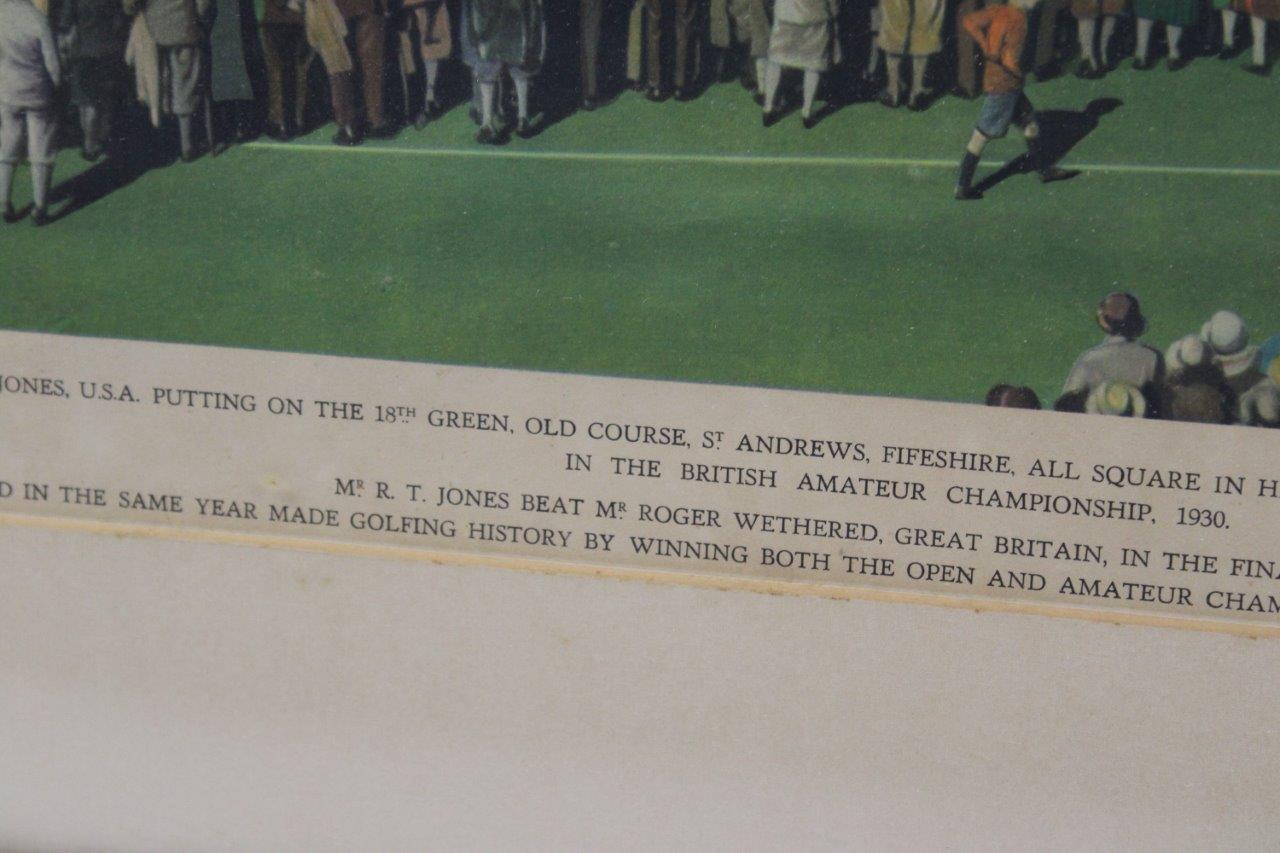 JONES, U.S.A. PUTTING ON THE 18TH GREEN, OLD COURSE, ST ANDREWS, FIFESHIRE, ALL SQUARE IN H
IN THE BRITISH AMATEUR CHAMPIONSHIP, 1930.
MR R. T. JONES BEAT MR ROGER WETHERED, GREAT BRITAIN, IN THE FINA
D IN THE SAME YEAR MADE GOLFING HISTORY BY WINNING BOTH THE OPEN AND AMATEUR CHAM